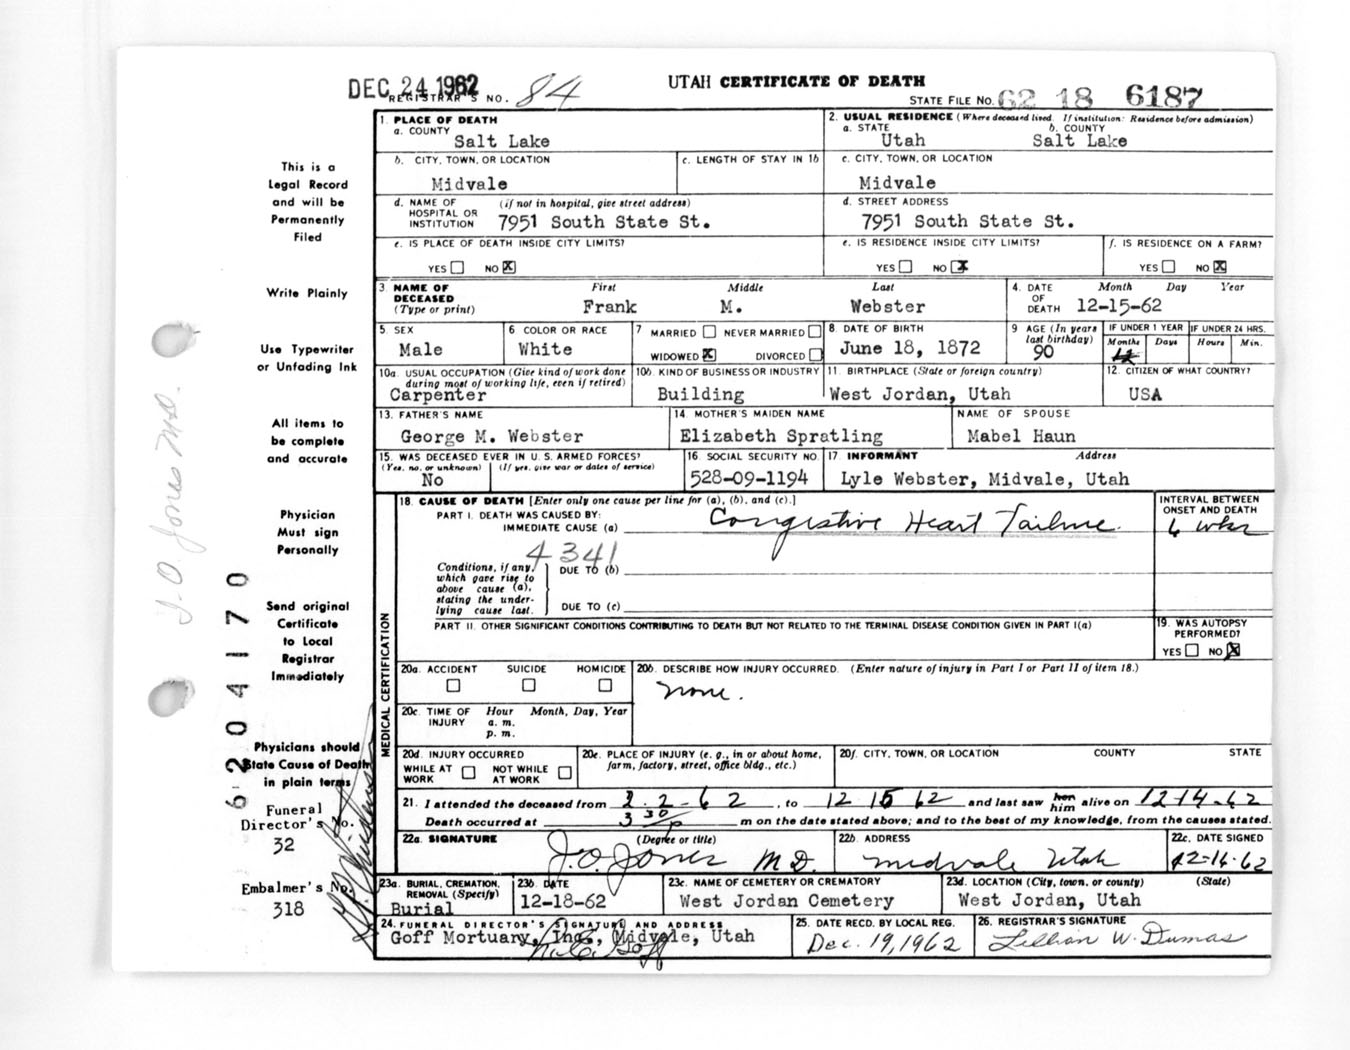 DEC 24 1962
REGISTRAR'S NO. 84
UTAH CERTIFICATE OF DEATH
STATE FILE NO. 62 18 6187
1. PLACE OF DEATH
a. COUNTY
Salt Lake
2. USUAL RESIDENCE (Where deceased lived. If institution: Residence before admission)
a. STATE b. COUNTY
Utah Salt Lake
b. CITY, TOWN, OR LOCATION
Midvale
c. LENGTH OF STAY IN 1b
c. CITY, TOWN, OR LOCATION
Midvale
d. NAME OF HOSPITAL OR INSTITUTION (if not in hospital, give street address)
7951 South State St.
d. STREET ADDRESS
7951 South State St.
e. IS PLACE OF DEATH INSIDE CITY LIMITS?
YES NO X
e. IS RESIDENCE INSIDE CITY LIMITS?
YES NO X
f. IS RESIDENCE ON A FARM?
YES NO X
3. NAME OF DECEASED (Type or print)
First Middle Last
Frank M. Webster
4. DATE OF DEATH
Month Day Year
12-15-62
5. SEX
Male
6 COLOR OR RACE
White
7 MARRIED NEVER MARRIED
WIDOWED X DIVORCED
8. DATE OF BIRTH
June 18, 1872
9 AGE (In years last birthday)
90
IF UNDER 1 YEAR IF UNDER 24 HRS.
Months Days Hours Min.
10a. USUAL OCCUPATION (Give kind of work done during most of working life, even if retired)
Carpenter
10b. KIND OF BUSINESS OR INDUSTRY
Building
11. BIRTHPLACE (State or foreign country)
West Jordan, Utah
12. CITIZEN OF WHAT COUNTRY?
USA
13. FATHER'S NAME
George M. Webster
14. MOTHER'S MAIDEN NAME
Elizabeth Spratling
NAME OF SPOUSE
Mabel Haun
15. WAS DECEASED EVER IN U.S. ARMED FORCES?
(Yes, no, or unknown) (If yes, give war or dates of service)
No
16. SOCIAL SECURITY NO.
528-09-1194
17. INFORMANT Address
Lyle Webster, Midvale, Utah
MEDICAL CERTIFICATION
18. CAUSE OF DEATH [Enter only one cause per line for (a), (b), and (c).]
PART I. DEATH WAS CAUSED BY:
IMMEDIATE CAUSE (a) Congestive Heart Failure.
INTERVAL BETWEEN ONSET AND DEATH
6 wks
4341
Conditions, if any, which gave rise to above cause (a), stating the underlying cause last.
DUE TO (b)
DUE TO (c)
PART II. OTHER SIGNIFICANT CONDITIONS CONTRIBUTING TO DEATH BUT NOT RELATED TO THE TERMINAL DISEASE CONDITION GIVEN IN PART I(a)
19. WAS AUTOPSY PERFORMED?
YES NO X
20a. ACCIDENT SUICIDE HOMICIDE
20b. DESCRIBE HOW INJURY OCCURRED. (Enter nature of injury in Part I or Part II of item 18.)
none.
20c. TIME OF INJURY Hour Month, Day, Year
a. m.
p. m.
20d. INJURY OCCURRED
WHILE AT WORK NOT WHILE AT WORK
20e. PLACE OF INJURY (e. g., in or about home, farm, factory, street, office bldg., etc.)
20f. CITY, TOWN, OR LOCATION COUNTY STATE
21. I attended the deceased from 2-2-62, to 12 15 62 and last saw her him alive on 12-14-62
Death occurred at 3 30 p m on the date stated above; and to the best of my knowledge, from the causes stated.
22a. SIGNATURE (Degree or title)
J. O. Jones M D.
22b. ADDRESS
Midvale Utah
22c. DATE SIGNED
12-16-62
23a. BURIAL, CREMATION, REMOVAL (Specify)
Burial
23b. DATE
12-18-62
23c. NAME OF CEMETERY OR CREMATORY
West Jordan Cemetery
23d. LOCATION (City, town, or county) (State)
West Jordan, Utah
24. FUNERAL DIRECTOR'S SIGNATURE AND ADDRESS
Goff Mortuary, Inc., Midvale, Utah
25. DATE RECD. BY LOCAL REG.
Dec. 19, 1962
26. REGISTRAR'S SIGNATURE
Lillian W. Dumas
This is a
Legal Record
and will be
Permanently
Filed
Write Plainly
Use Typewriter
or Unfading Ink
All items to
be complete
and accurate
Physician
Must sign
Personally
Send original
Certificate
to Local
Registrar
Immediately
Physicians should
State Cause of Death
in plain terms
Funeral
Director's No.
32
Embalmer's No.
318
J. O Jones M.D.
6204170